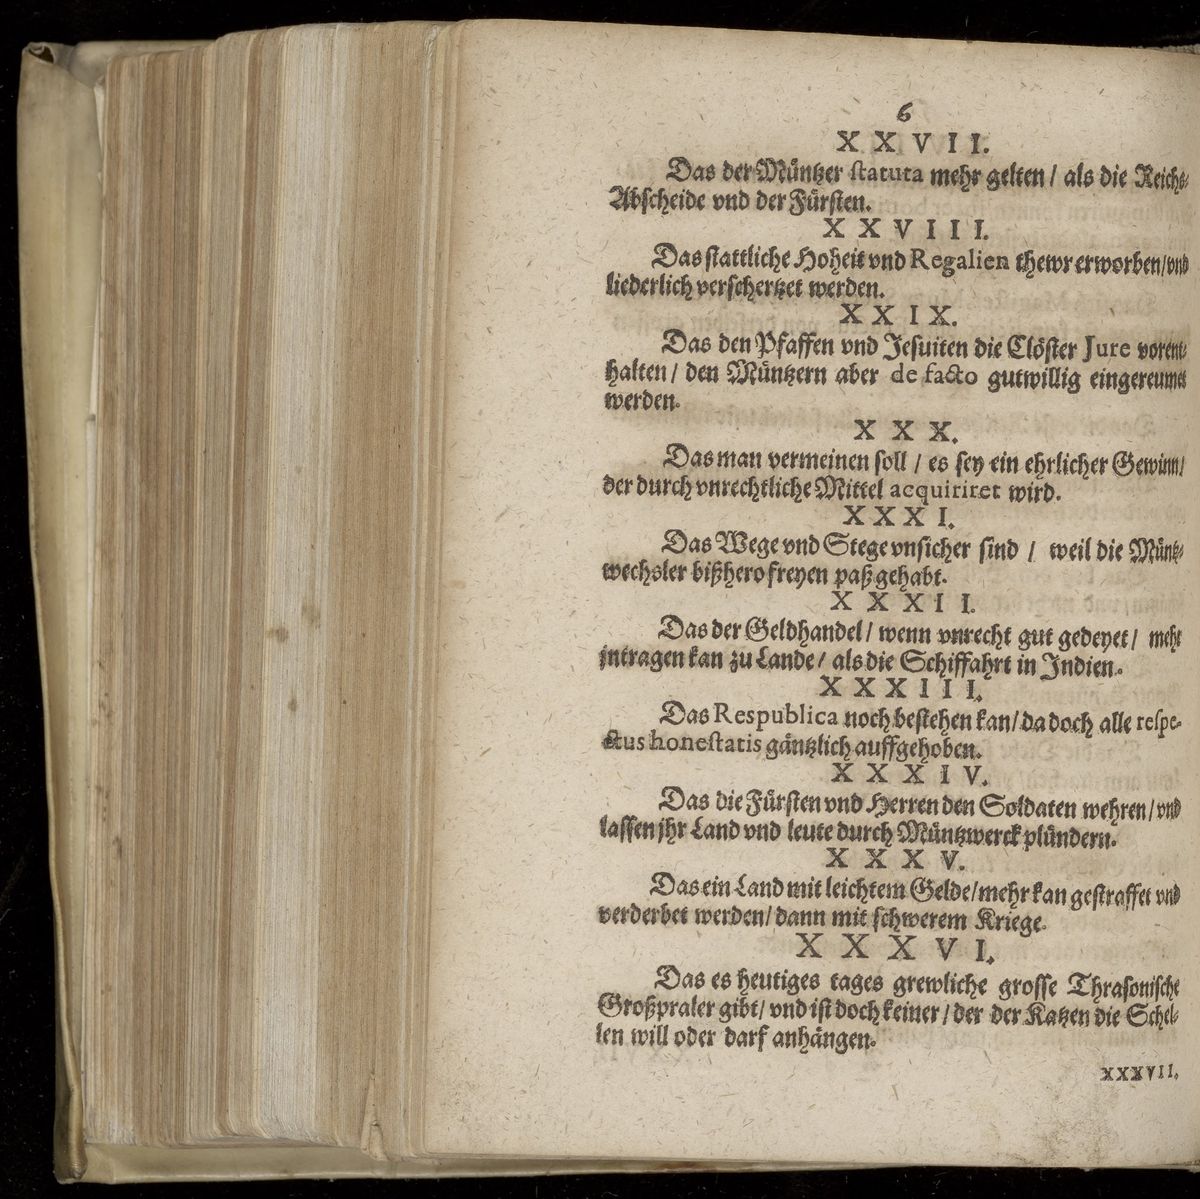 6
XXVII.
Das der Müntzer statuta mehr gelten / als die Reichs-
Abscheide vnd der Fürsten.
XXVIII.
Das stattliche Hoheit vnd Regalien thewr erworben/vnd
liederlich verschertzet werden.
XXIX.
Das den Pfaffen vnd Jesuiten die Clöster Jure vorent-
halten / den Müntzern aber de facto gutwillig eingereumet
werden.
XXX.
Das man vermeinen soll / es sey ein ehrlicher Gewinn/
der durch vnrechtliche Mittel acquiriret wird.
XXXI.
Das Wege vnd Stege vnsicher sind / weil die Müntz-
wechsler bißhero freyen paß gehabt.
XXXII.
Das der Geldhandel / wenn vnrecht gut gedeyet / mehr
jntragen kan zu Lande / als die Schiffahrt in Indien.
XXXIII.
Das Respublica noch bestehen kan / da doch alle respe-
ctus honestatis gäntzlich auffgehoben.
XXXIV.
Das die Fürsten vnd Herren den Soldaten wehren / vnd
lassen jhr Land vnd leute durch Müntzwerck plündern.
XXXV.
Das ein Land mit leichtem Gelde / mehr kan gestraffet vnd
verderbet werden / dann mit schwerem Kriege.
XXXVI.
Das es heutiges tages grewliche grosse Thrasonische
Großpraler gibt / vnd ist doch keiner / der der Katzen die Schel-
len will oder darf anhängen.
XXXVII.